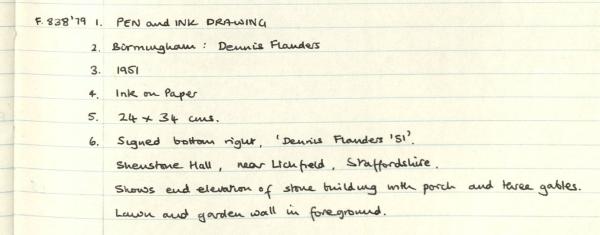 F.838'79 1. PEN and INK DRAWING
2. Birmingham : Dennis Flanders
3. 1951
4. Ink on Paper
5. 24 x 34 cms.
6. Signed bottom right, 'Dennis Flanders '51'.
Shenstone Hall, near Lichfield, Staffordshire.
Shows end elevation of stone building with porch and three gables.
Lawn and garden wall in foreground.